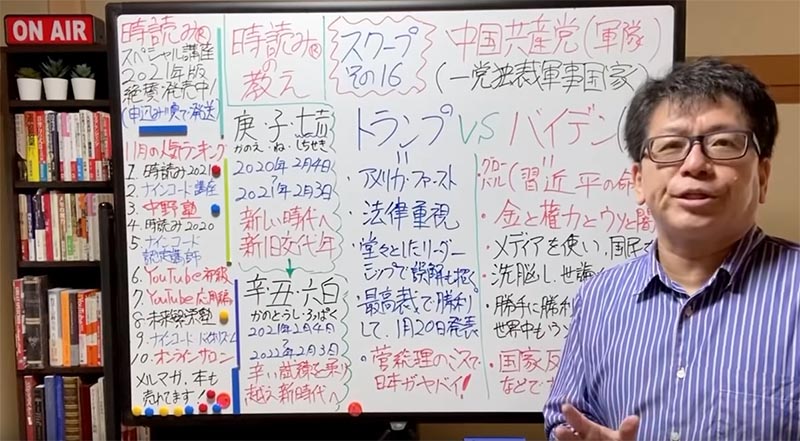 ON AIR
時読み®
スペシャル講座
2021年版
絶賛発売中!
(申込み順で発送)
11月の人気ランキング
1. 時読み2021
2. ナインコード講座
3. 中野塾
4. 時読み2020
5. ナインコード
6. YouTube初級
7. YouTube応用編
8. 未来繁栄塾
9. ナインコード
10. オンラインサロン
メルマガ、本も
売れてます!
時読み®
の
教え
庚・子・七赤
かのえ・ね・しちせき
2020年2月4日
2021年2月3日
新しい時代へ
新旧交代年
辛・丑・六白
かのとうし・ろっぱく
2021年2月4日
2022年2月3日
辛い試練を乗り
越え新時代へ
スクープ
その16
中国共産党(軍隊)
(一党独裁軍事国家)
トランプ VS バイデン
・アメリカ・ファースト
・法律重視
・堂々としたリーダー
シップで誤解も招く
・最高裁で勝利
して、1月20日発表
・菅総理のミスで
日本がヤバイ!
グローバル
(習近平の命
・金と権力とウソと闇
・メディアを使い、国民を
洗脳し、世論
・勝手に勝利
世界中もウソ
・国家反
などで